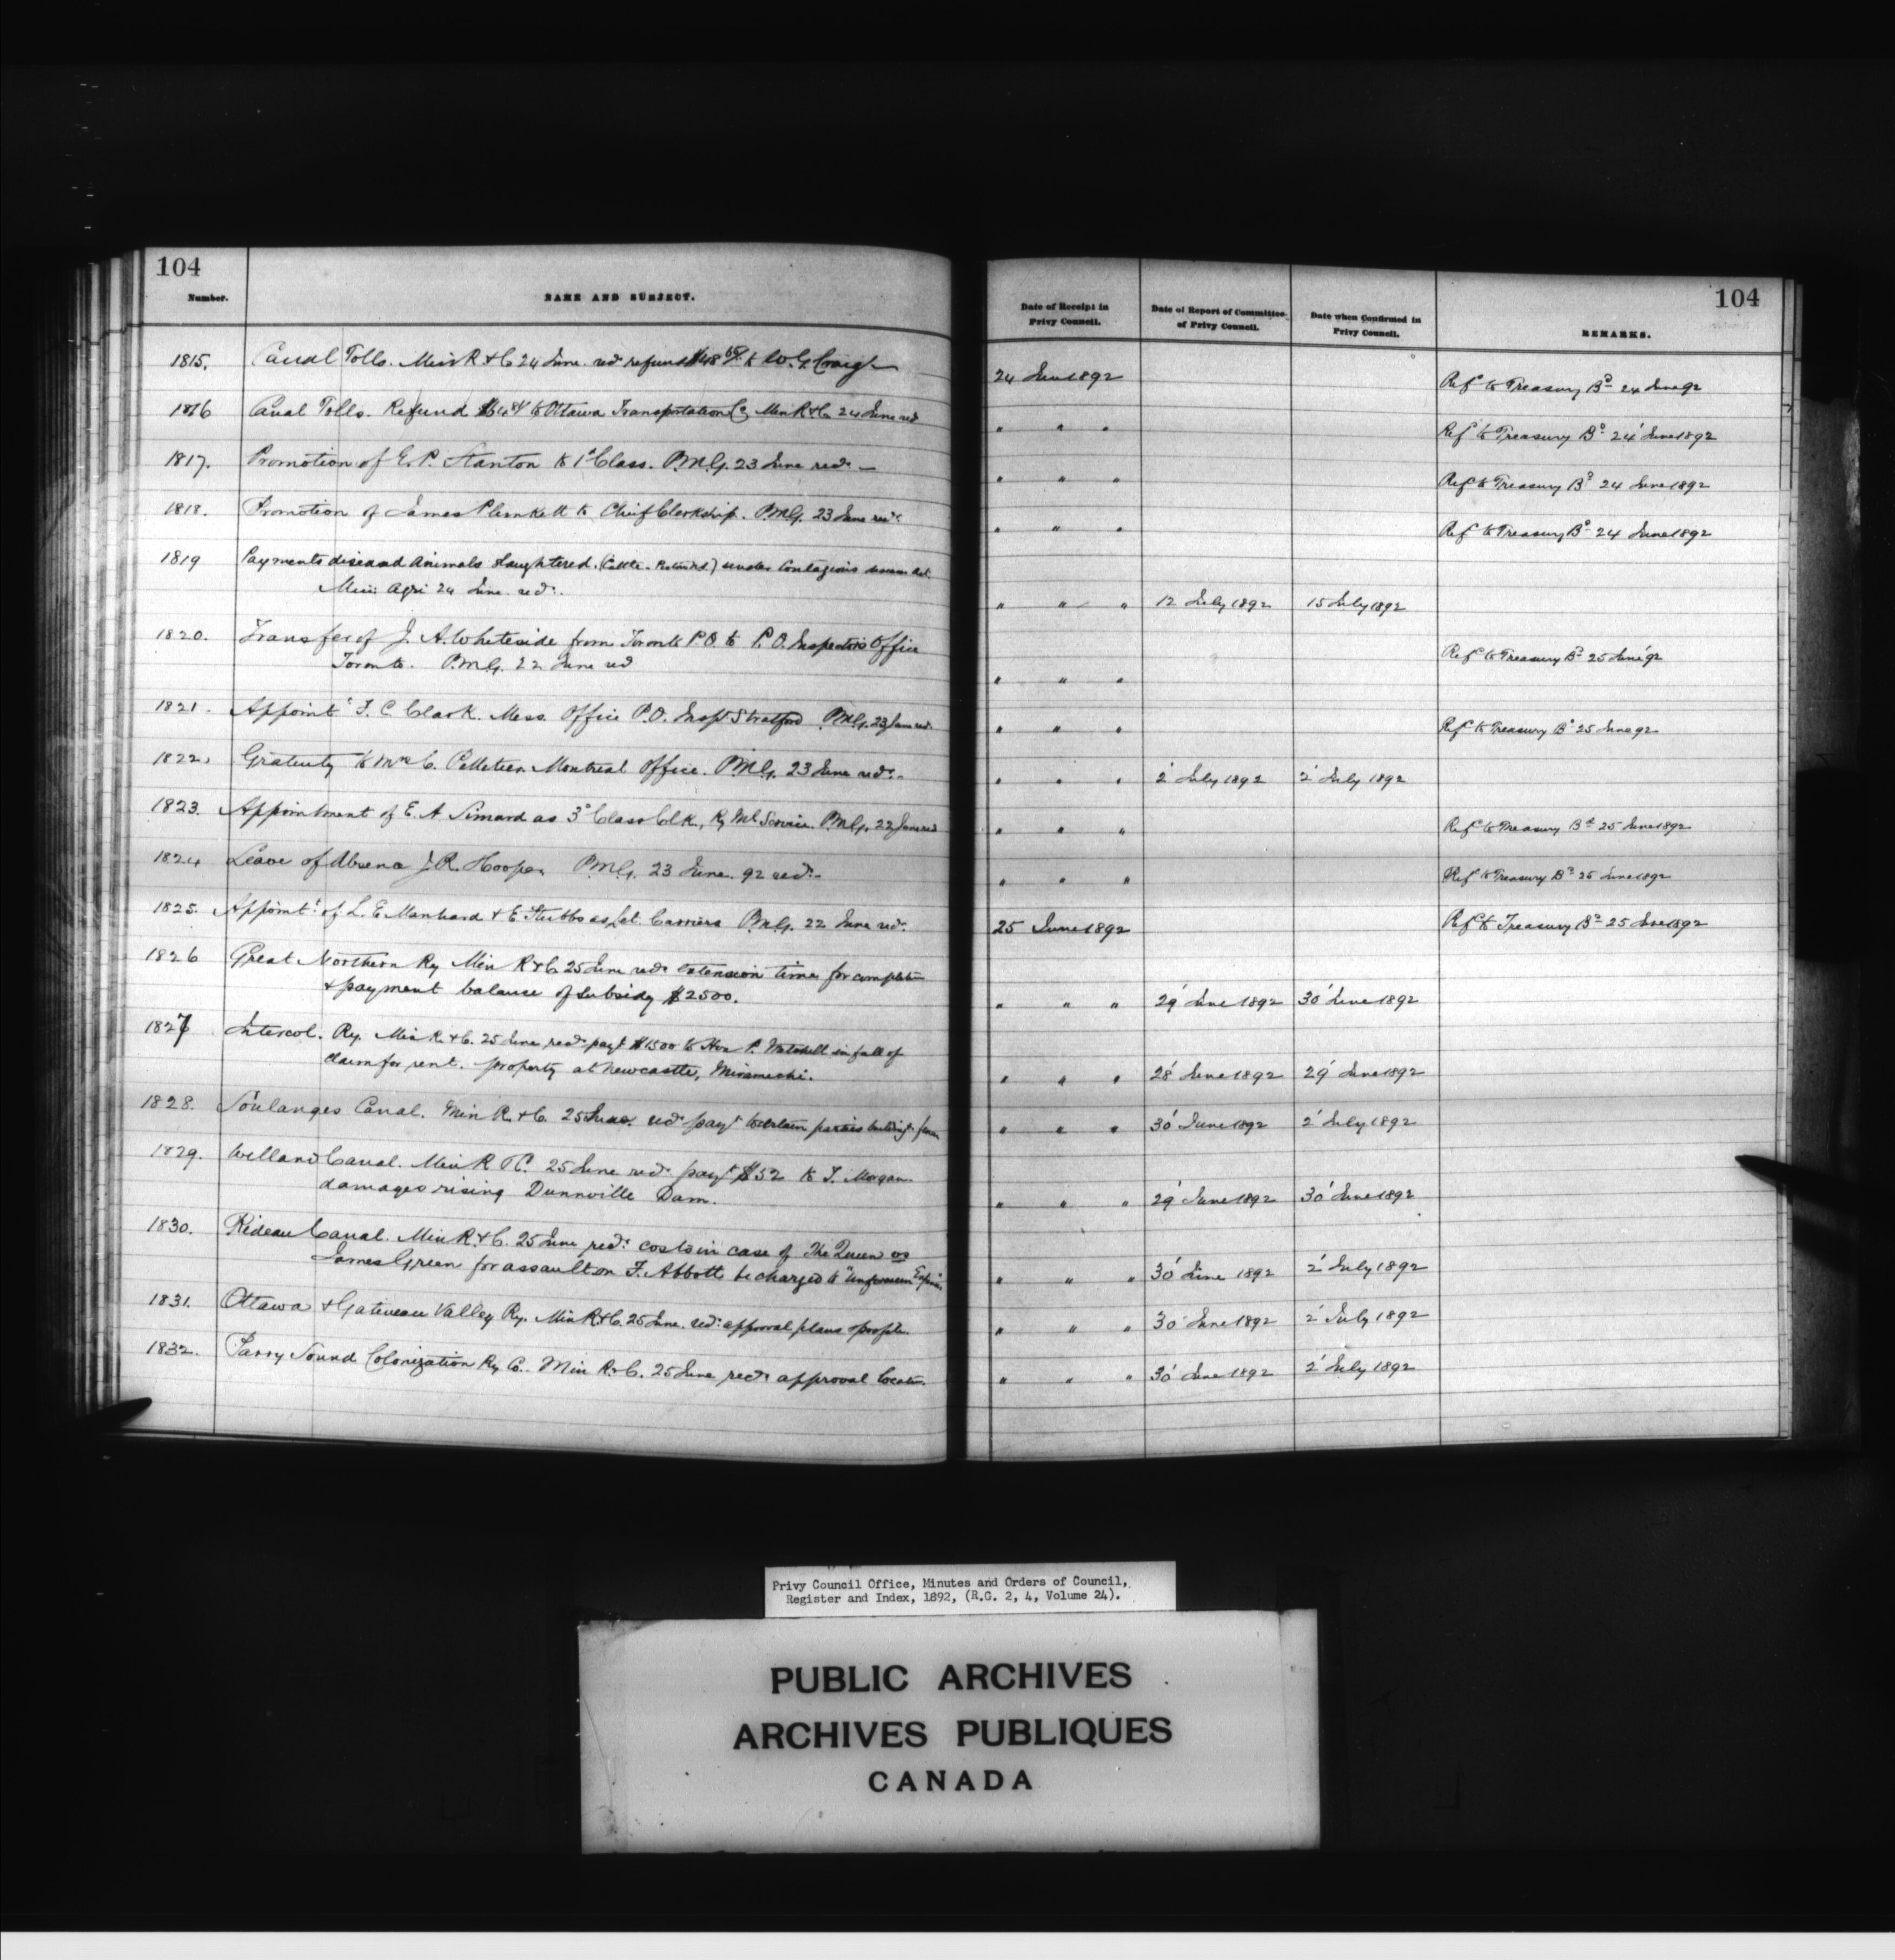 104
Number.
NAME AND SUBJECT.
Date of Receipt in
Privy Council.
Date of Report of Committee
of Privy Council.
Date when Confirmed in
Privy Council.
104
REMARKS.
1815. Canal Tolls. Min R & C 24 June. recd refund to W. G. Craig 24 June 1892 Refd to Treasury Bd 24 June 92
1816 Canal Tolls. Refund to Ottawa Transportation Co Min R & C 24 June recd " " " Refd to Treasury Bd 24' June 1892
1817. Promotion of E. P. Stanton to 1st Class. P.M.G. 23 June recd. — " " " Refd to Treasury Bd 24 June 1892
1818. Promotion of James Plunkett to Chief Clerkship. P.M.G. 23 June recd. " " " Refd to Treasury Bd 24 June 1892
1819 Payments diseased animals slaughtered. under Contagious disease Act.
Min: Agri 24 June. recd. " " " 12 July 1892 15 July 1892
1820. Transfer of J. A. Whiteside from Toronto P.O. to P.O. Inspectors Office Refd to Treasury Bd 25 June '92
Toronto. P.M.G. 22 June recd " " "
1821. Appointt F. C. Clark. Mess. Office P.O. Inspt Stratford P.M.G. 23 June recd. " " " Refd to Treasury Bd 25 June 92
1822. Gratuity to C. Pelletier. Montreal Office. P.M.G. 23 June recd. " " " 2' July 1892 2' July 1892
1823. Appointment of E. A Simard as 3d Class Clk, Ry Ml Service. P.M.G. 22 June recd " " " Refd to Treasury Bd 25 June 1892
1824 Leave of Absence J. R. Hooper P.M.G. 23 June. 92 recd. " " " Refd to Treasury Bd 25 June 1892
1825. Appointt of L. E. Manhard & E. Stubbs as Let. Carriers P.M.G. 22 June recd. 25 June 1892 Refd to Treasury Bd 25 June 1892
1826 Great Northern Ry Min R & C 25 June recd extension time for completion
& payment balance of subsidy $2500. " " " 29' June 1892 30' June 1892
1827 Intercol. Ry. Min R. & C. 25 June recd payt $1500 to Hon P. Mitchell in full of
claim for rent. property at Newcastle, Miramichi. " " " 28' June 1892 29' June 1892
1828. Soulanges Canal. Min R. & C. 25 June. recd payt to certain parties building fences " " " 30' June 1892 2' July 1892
1829. Welland Canal. Min R & C. 25 June recd payt $52 to T. Morgan
damages rising Dunnville Dam. " " " 29' June 1892 30' June 1892
1830. Rideau Canal. Min R. & C. 25 June recd. costs in case of The Queen vs
James Green for assault on F. Abbott be charged to "Unforeseen Expenses " " " 30' June 1892 2' July 1892
1831. Ottawa & Gatineau Valley Ry. Min R. & C. 25 June. recd. approval plans & profile. " " " 30' June 1892 2' July 1892
1832. Parry Sound Colonization Ry Co. Min R. & C. 25 June recd approval location. " " " 30' June 1892 2' July 1892
Privy Council Office, Minutes and Orders of Council,
Register and Index, 1892, (R.G. 2, 4, Volume 24).
PUBLIC ARCHIVES
ARCHIVES PUBLIQUES
CANADA